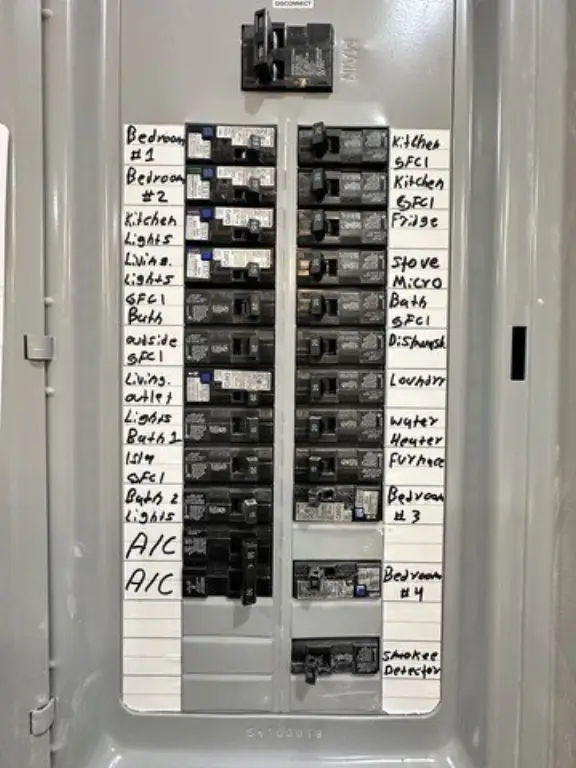 DISCONNECT
MAIN
Bedroom
#1
Bedroom
#2
Kitchen
Lights
Living.
Lights
GFCI
Bath
outside
GFCI
Living.
outlet
Lights
Bath 1
GFCI
Bath 2
Lights
A/C
A/C
Kitchen
GFCI
Kitchen
GFCI
Fridge
Stove
Micro
Bath
GFCI
Water
Heater
Furnace
Bedroom
#3
Bedroom
#4
Smokee
Detector